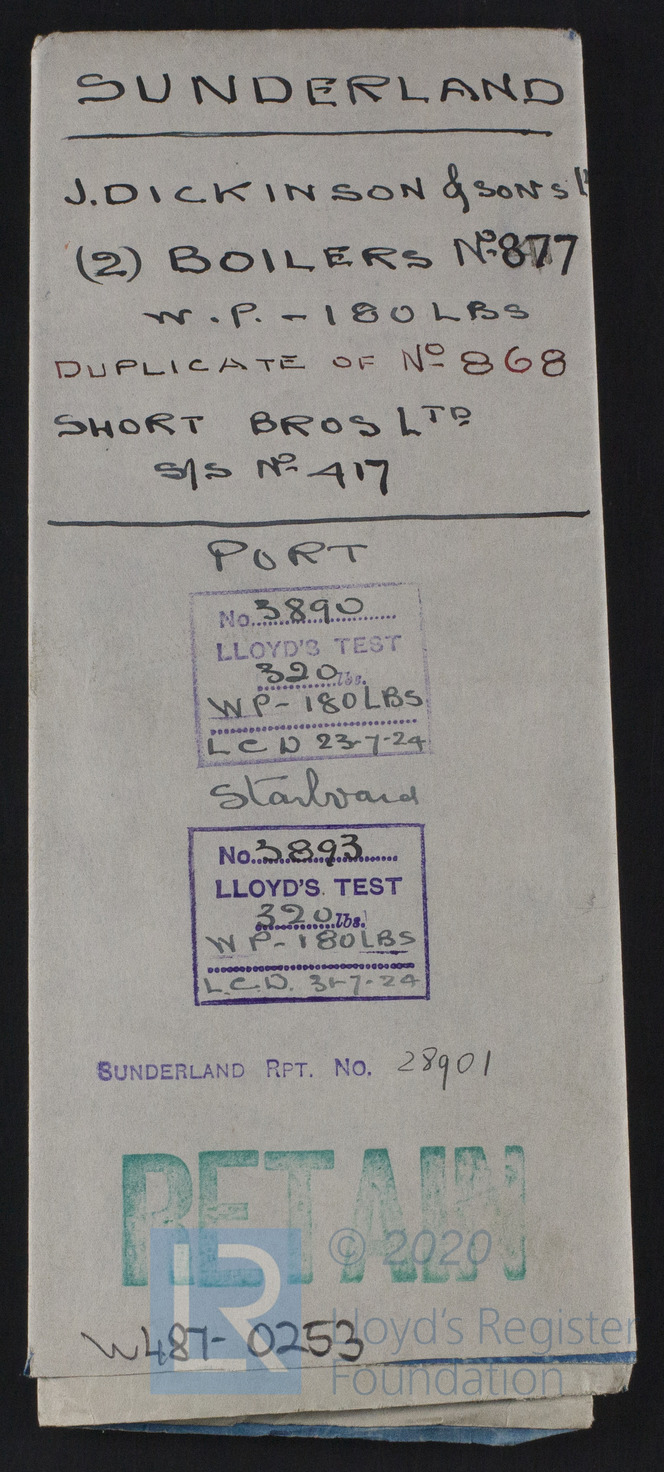 SUNDERLAND
J. DICKINSON & SONS Lt
(2) BOILERS No 877
W.P. - 180 LBS
DUPLICATE OF No 868
SHORT BROS LTD
S/S No 417
PORT
No. 3890
LLOYD'S TEST
320 lbs.
WP - 180 LBS
LCD 23-7-24
Starboard
No. 3893
LLOYD'S TEST
320 lbs.
WP - 180 LBS
L.C.D. 31-7-24
SUNDERLAND RPT. NO. 28901
RETAIN
LR
© 2020
Lloyd's Register
Foundation
W487-0253